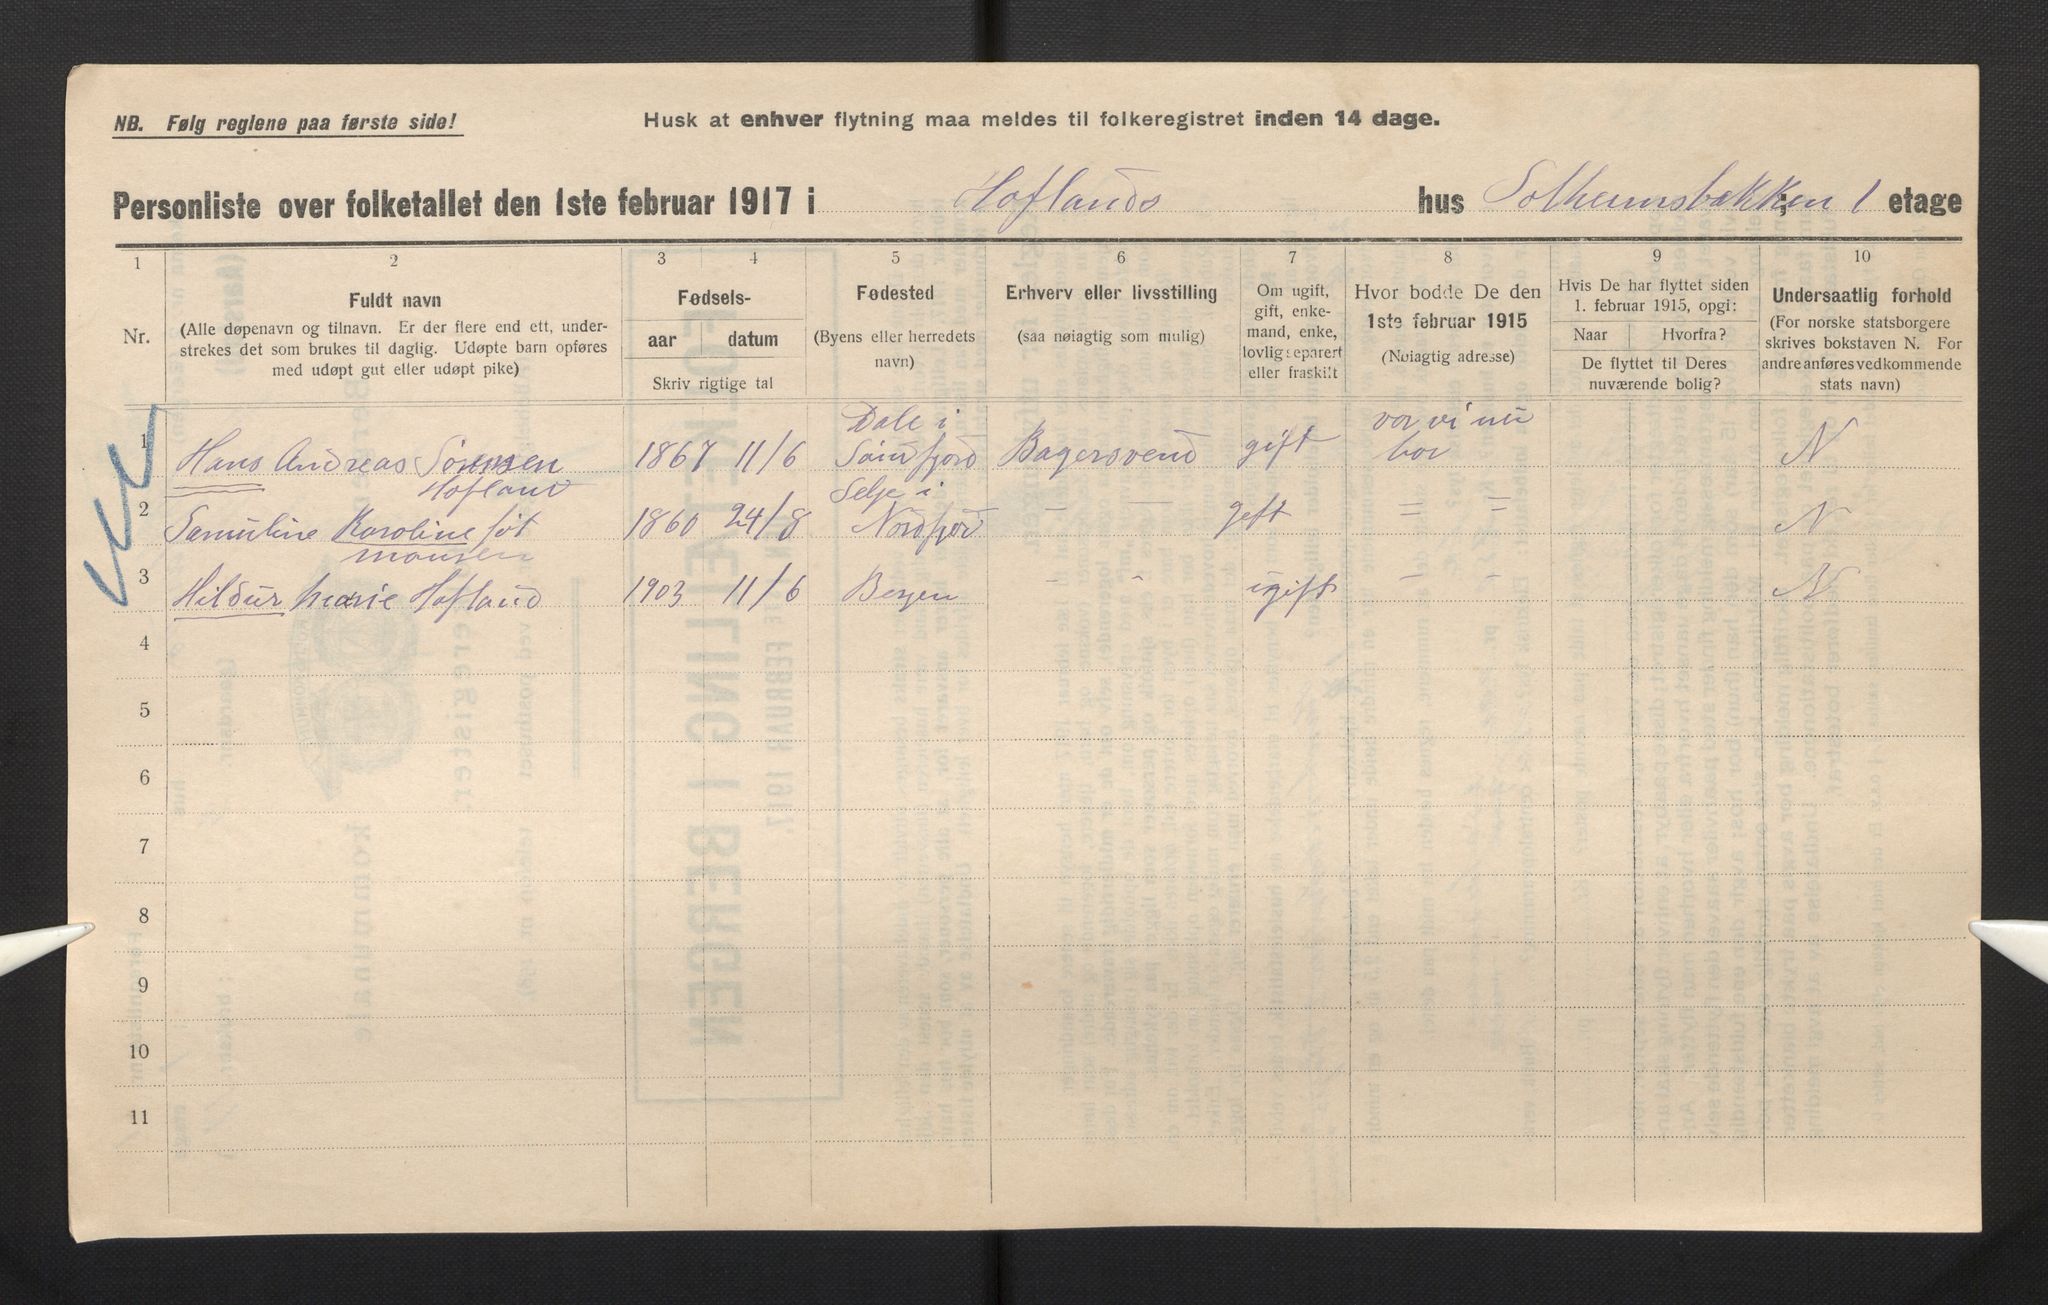 NB. Følg reglene paa første side!
Husk at enhver flytning maa meldes til folkeregistret inden 14 dage.
Personliste over folketallet den 1ste februar 1917 i Hoflands hus Solheimsbakken 1 etage
1 2 3 4 5 6 7 8 9 10
Nr.
Fuldt navn
(Alle døpenavn og tilnavn. Er der flere end ett, under-
strekes det som brukes til daglig. Udøpte barn opføres
med udøpt gut eller udøpt pike)
Fødsels-
aar datum
Skriv rigtige tal
Fødested
(Byens eller herredets
navn)
Erhverv eller livsstilling
(saa nøiagtig som mulig)
Om ugift,
gift, enke-
mand, enke,
lovlig separert
eller fraskilt
Hvor bodde De den
1ste februar 1915
(Nøiagtig adresse)
Hvis De har flyttet siden
1. februar 1915, opgi:
Naar Hvorfra?
De flyttet til Deres
nuværende bolig?
Undersaatlig forhold
(For norske statsborgere
skrives bokstaven N. For
andre anføres vedkommende
stats navn)
Dale i vor vi nu
1 Hans Andreas Sørensen 1867 11/6 Søndfjord Bagersvend gift bor N
Hofland Selje i
2 Samuline Karoline 1860 24/8 Nordfjord - - gift = = N
3 Hildur Marie Hofland 1903 11/6 Bergen - " ugift - - N
4
5
6
7
8
9
10
11